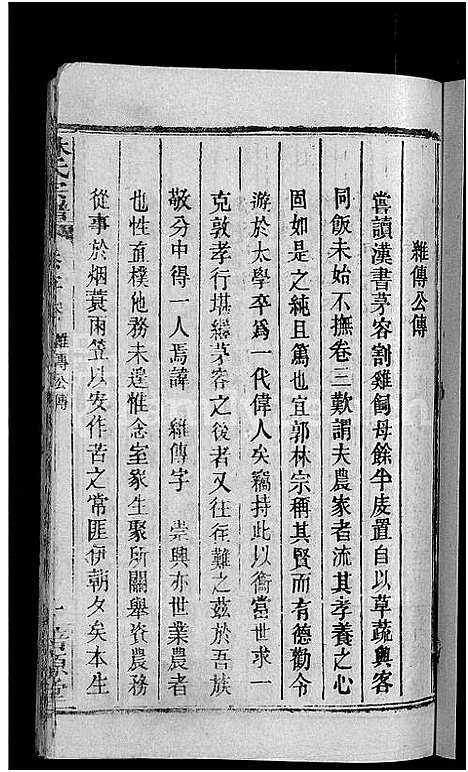 雜傳公傳
嘗讀漢書茅容割雞飼母餘半庋置自以草蔬與客
同飯未始不撫卷三歎謂夫農家者流其孝養之心
固如是之純且篤也宜郭林宗稱其賢而有德勸令
游於太學卒為一代偉人矣竊持此以衡當世求一
克敦孝行堪繼茅容之後者又往往難之茲於吾族
敬分中得一人焉諱 維傳字 崇興亦世業農者
也性直樸他務未遑惟念室家生聚所關舉資農務
從事於烟蓑雨笠以安作苦之常匪伊朝夕矣本生
林氏宗譜
雜傳公傳